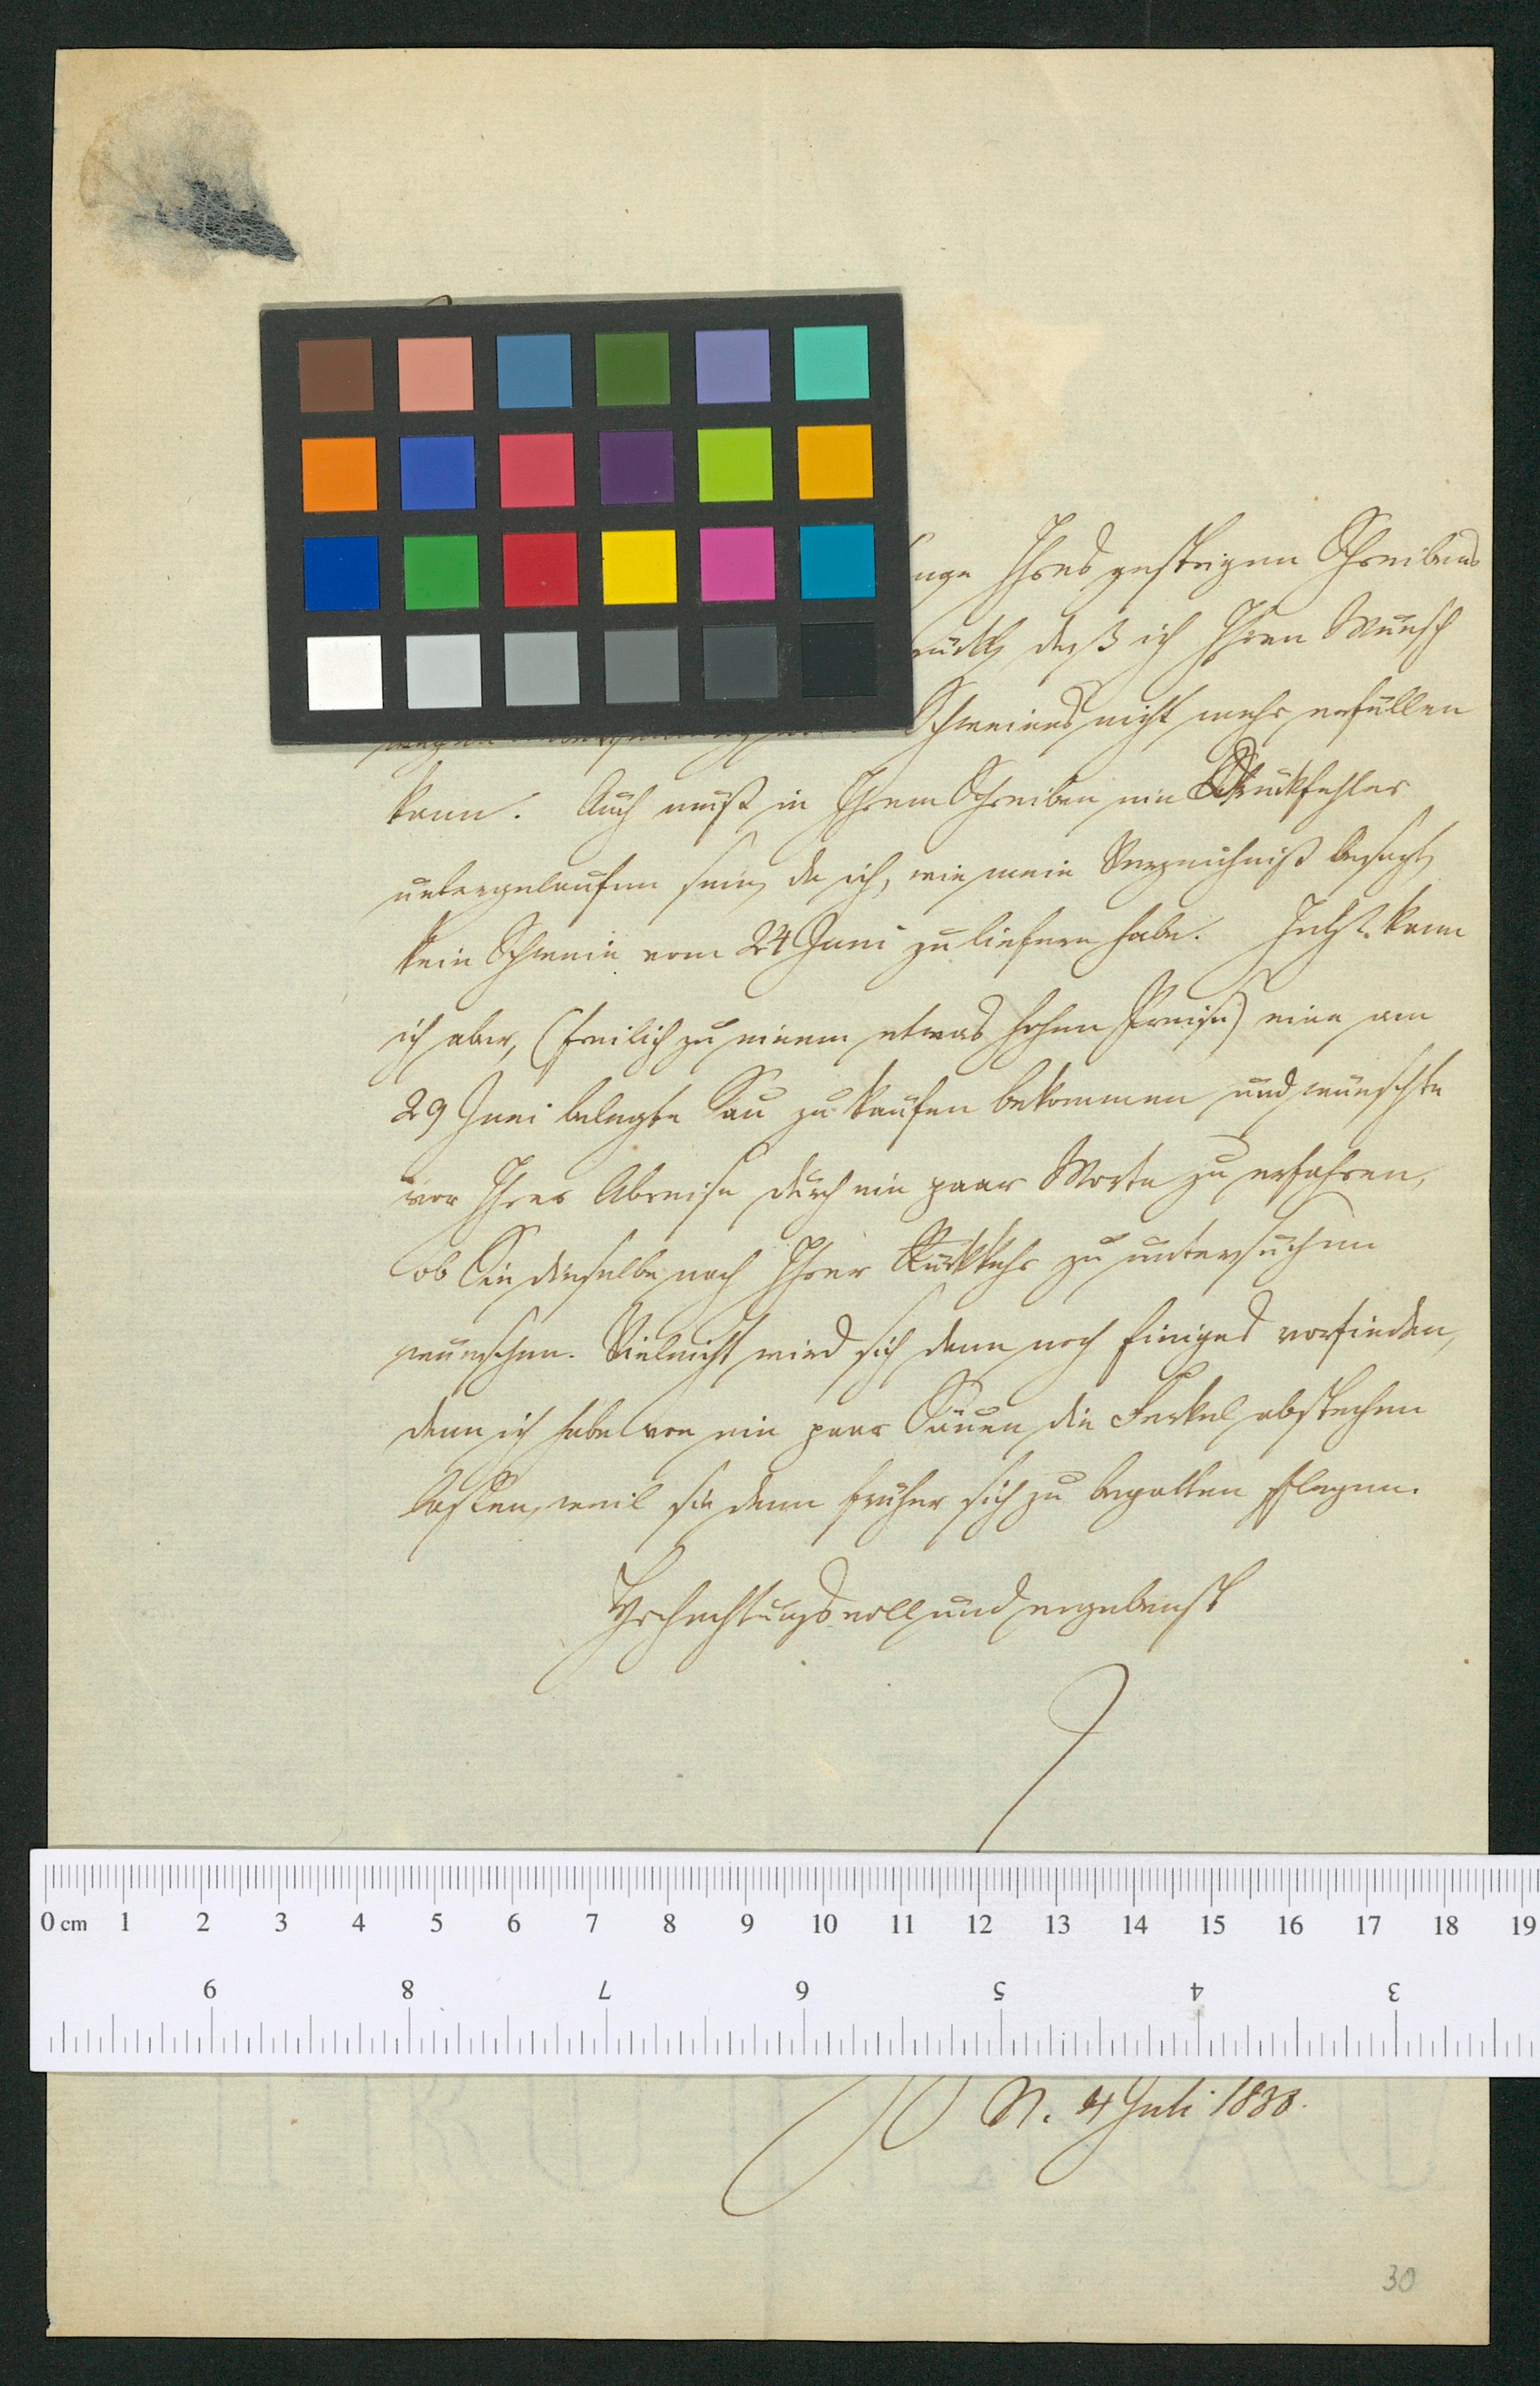 Ihres gestrigen Schreibens
daß ich Ihren Wunsch
Schweines nicht mehr erfüllen
kann. Auch muß in Ihrem Schreiben ein Druckfehler
untergelaufen sein, da ich, wie mein Verzeichniß besagt,
kein Schwein vom 24 Juni zu liefern habe. Jetzt kann
ich aber, (freilich zu einem etwas hohen Preise) eine am
29 Juni belegte Sau zu kaufen bekommen und wünschte
vor Ihrer Abreise durch ein paar Worte zu erfahren,
ob Sie dieselbe nach Ihrer Rückkehr zu untersuchen
wünschen. Vieleicht wird sich dann noch Einiges vorfinden,
denn ich habe von ein paar Säuen die Ferkel abstechen
lassen, weil sie dann früher sich zu begatten pflegen.
Hochachtungsvoll und ergebenst
N. 4 Juli 1838.
30
0 cm 1 2 3 4 5 6 7 8 9 10 11 12 13 14 15 16 17 18 19
9 8 7 6 5 4 3